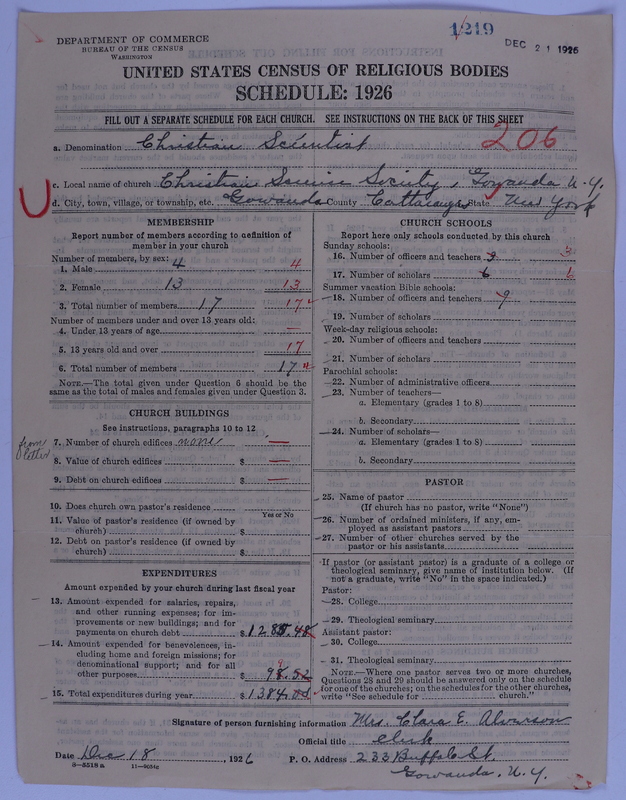 1219
DEC 21 1926
DEPARTMENT OF COMMERCE
BUREAU OF THE CENSUS
WASHINGTON
UNITED STATES CENSUS OF RELIGIOUS BODIES
SCHEDULE: 1926
FILL OUT A SEPARATE SCHEDULE FOR EACH CHURCH. SEE INSTRUCTIONS ON THE BACK OF THIS SHEET
206
a. Denomination Christian Scientist
c. Local name of church Christian Science Society, Gowanda N.Y.
d. City, town, village, or township, etc. Gowanda County Cattaraugus State New York
MEMBERSHIP
Report number of members according to definition of
member in your church
Number of members, by sex:
1. Male 4 4
2. Female 13 13
3. Total number of members 17 17
Number of members under and over 13 years old:
4. Under 13 years of age —
5. 13 years old and over 17
6. Total number of members 17
NOTE.—The total given under Question 6 should be the
same as the total of males and females given under Question 3.
CHURCH BUILDINGS
See instructions, paragraphs 10 to 12
from letter
7. Number of church edifices none —
8. Value of church edifices $ —
9. Debt on church edifices $ —
10. Does church own pastor's residence
Yes or No
11. Value of pastor's residence (if owned by
church) $
12. Debt on pastor's residence (if owned by
church) $
EXPENDITURES
Amount expended by your church during last fiscal year
13. Amount expended for salaries, repairs,
and other running expenses; for im-
provements or new buildings; and for
payments on church debt $1285.48
14. Amount expended for benevolences, in-
cluding home and foreign missions; for
denominational support; and for all
other purposes $ 98.52
15. Total expenditures during year $1384.00
CHURCH SCHOOLS
Report here only schools conducted by this church
Sunday schools:
16. Number of officers and teachers 3
17. Number of scholars 6 6
Summer vacation Bible schools:
18. Number of officers and teachers
19. Number of scholars
Week-day religious schools:
20. Number of officers and teachers
21. Number of scholars
Parochial schools:
22. Number of administrative officers
23. Number of teachers—
a. Elementary (grades 1 to 8)
b. Secondary
24. Number of scholars—
a. Elementary (grades 1 to 8)
b. Secondary
PASTOR
25. Name of pastor
(If church has no pastor, write "None")
26. Number of ordained ministers, if any, em-
ployed as assistant pastors
27. Number of other churches served by the
pastor or his assistants
If pastor (or assistant pastor) is a graduate of a college or
theological seminary, give name of institution below. (If
not a graduate, write "No" in the space indicated.)
Pastor:
28. College
29. Theological seminary
Assistant pastor:
30. College
31. Theological seminary
NOTE.—Where one pastor serves two or more churches,
Questions 28 and 29 should be answered only on the schedule
for one of the churches; on the schedules for the other churches,
write "See schedule for church."
Signature of person furnishing information Mrs. Clara E. Alverson
Official title Clerk
Date Dec 18, 1926 P. O. Address 233 Buffalo St.
8—5518a 11—9634c
Gowanda. N.Y.